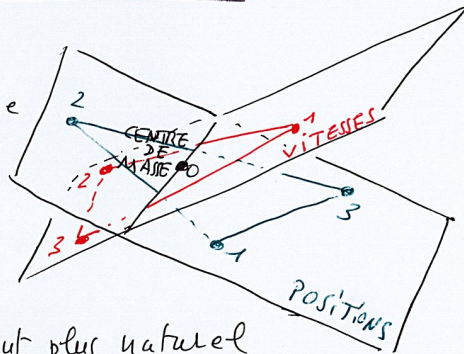 e
2
CENTRE
DE
MASSE
O
1
VITESSES
2
3
3
1
POSITIONS
ut plus naturel